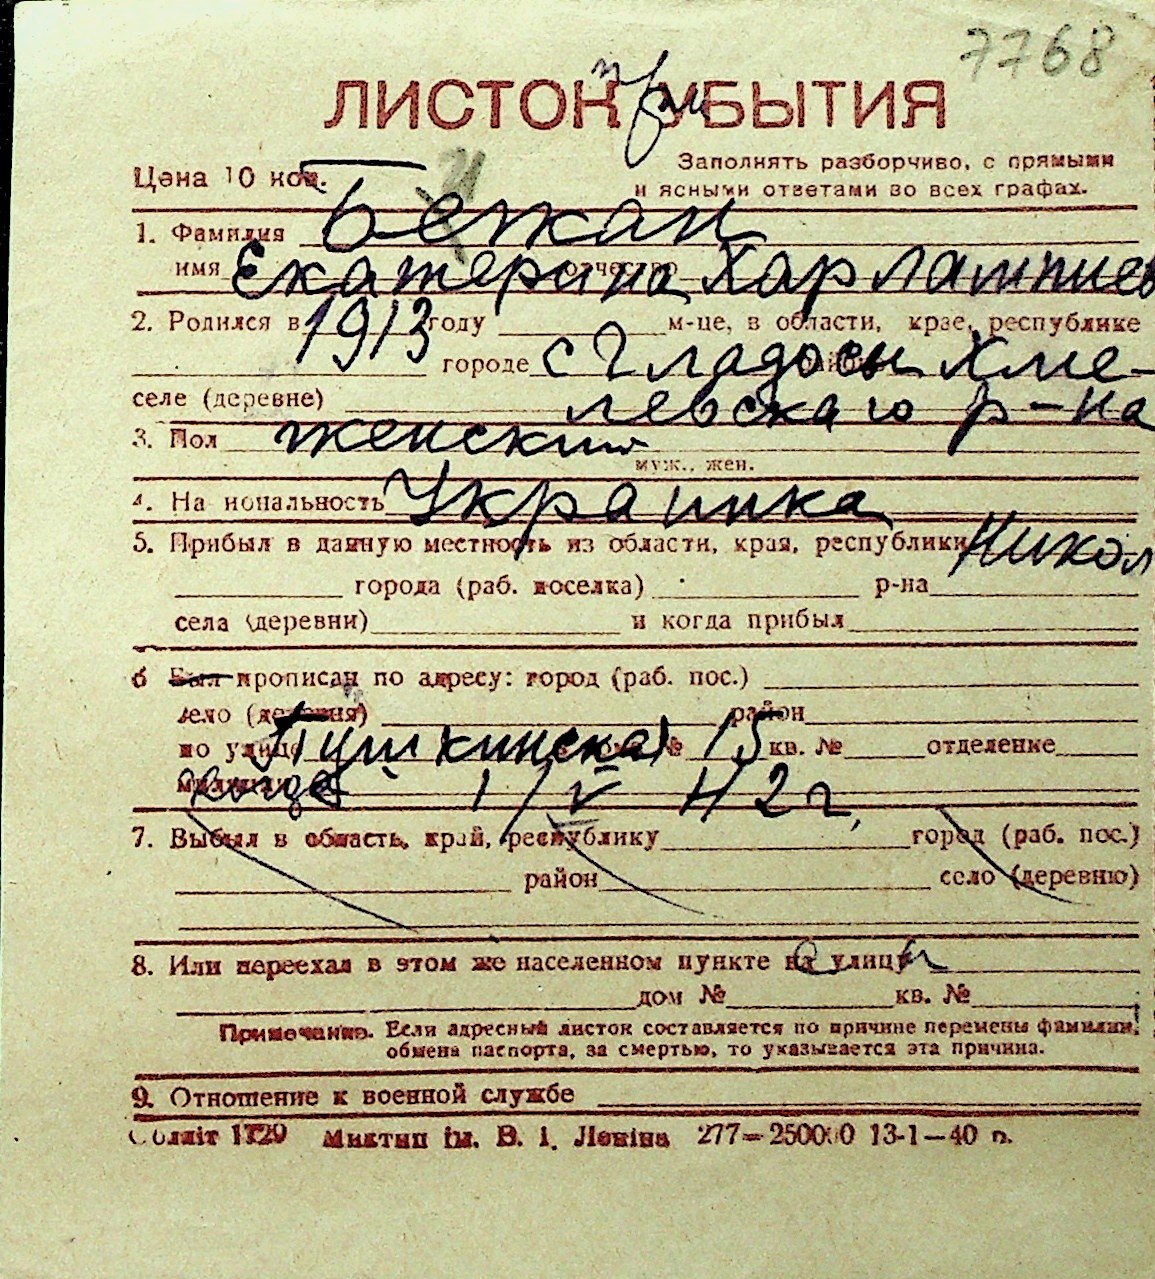 7768
ЛИСТОК УБЫТИЯ
Цена 10 коп.
Заполнять разборчиво, с прямыми
и ясными ответами во всех графах.
1. Фамилия Бежан
имя Екатерина отчество Харлампиев
2. Родился в 1913 году м-це, в области, крае, республике
городе с Гладосы Хме-
селе (деревне) левского р-на
3. Пол женский
муж., жен.
4. На иональность Украинка
5. Прибыл в данную местность из области, края, республики Никол
города (раб. поселка) р-на
села (деревни) и когда прибыл
6 Был прописан по адресу: город (раб. пос.)
село (деревня) район
по улице Пушкинская дом № 15 кв. № отделение
милиции 1/V 42 г.
7. Выбыл в область, край, республику город (раб. пос.)
район село (деревню)
8. Или переехал в этом же населенном пункте на улицу
дом № кв. №
Примечание. Если адресный листок составляется по причине перемены фамилии,
обмена паспорта, за смертью, то указывается эта причина.
9. Отношение к военной службе
Обллiт 1729 Миктип iм. В. I. Ленiна 277—250000 13-1—40 р.